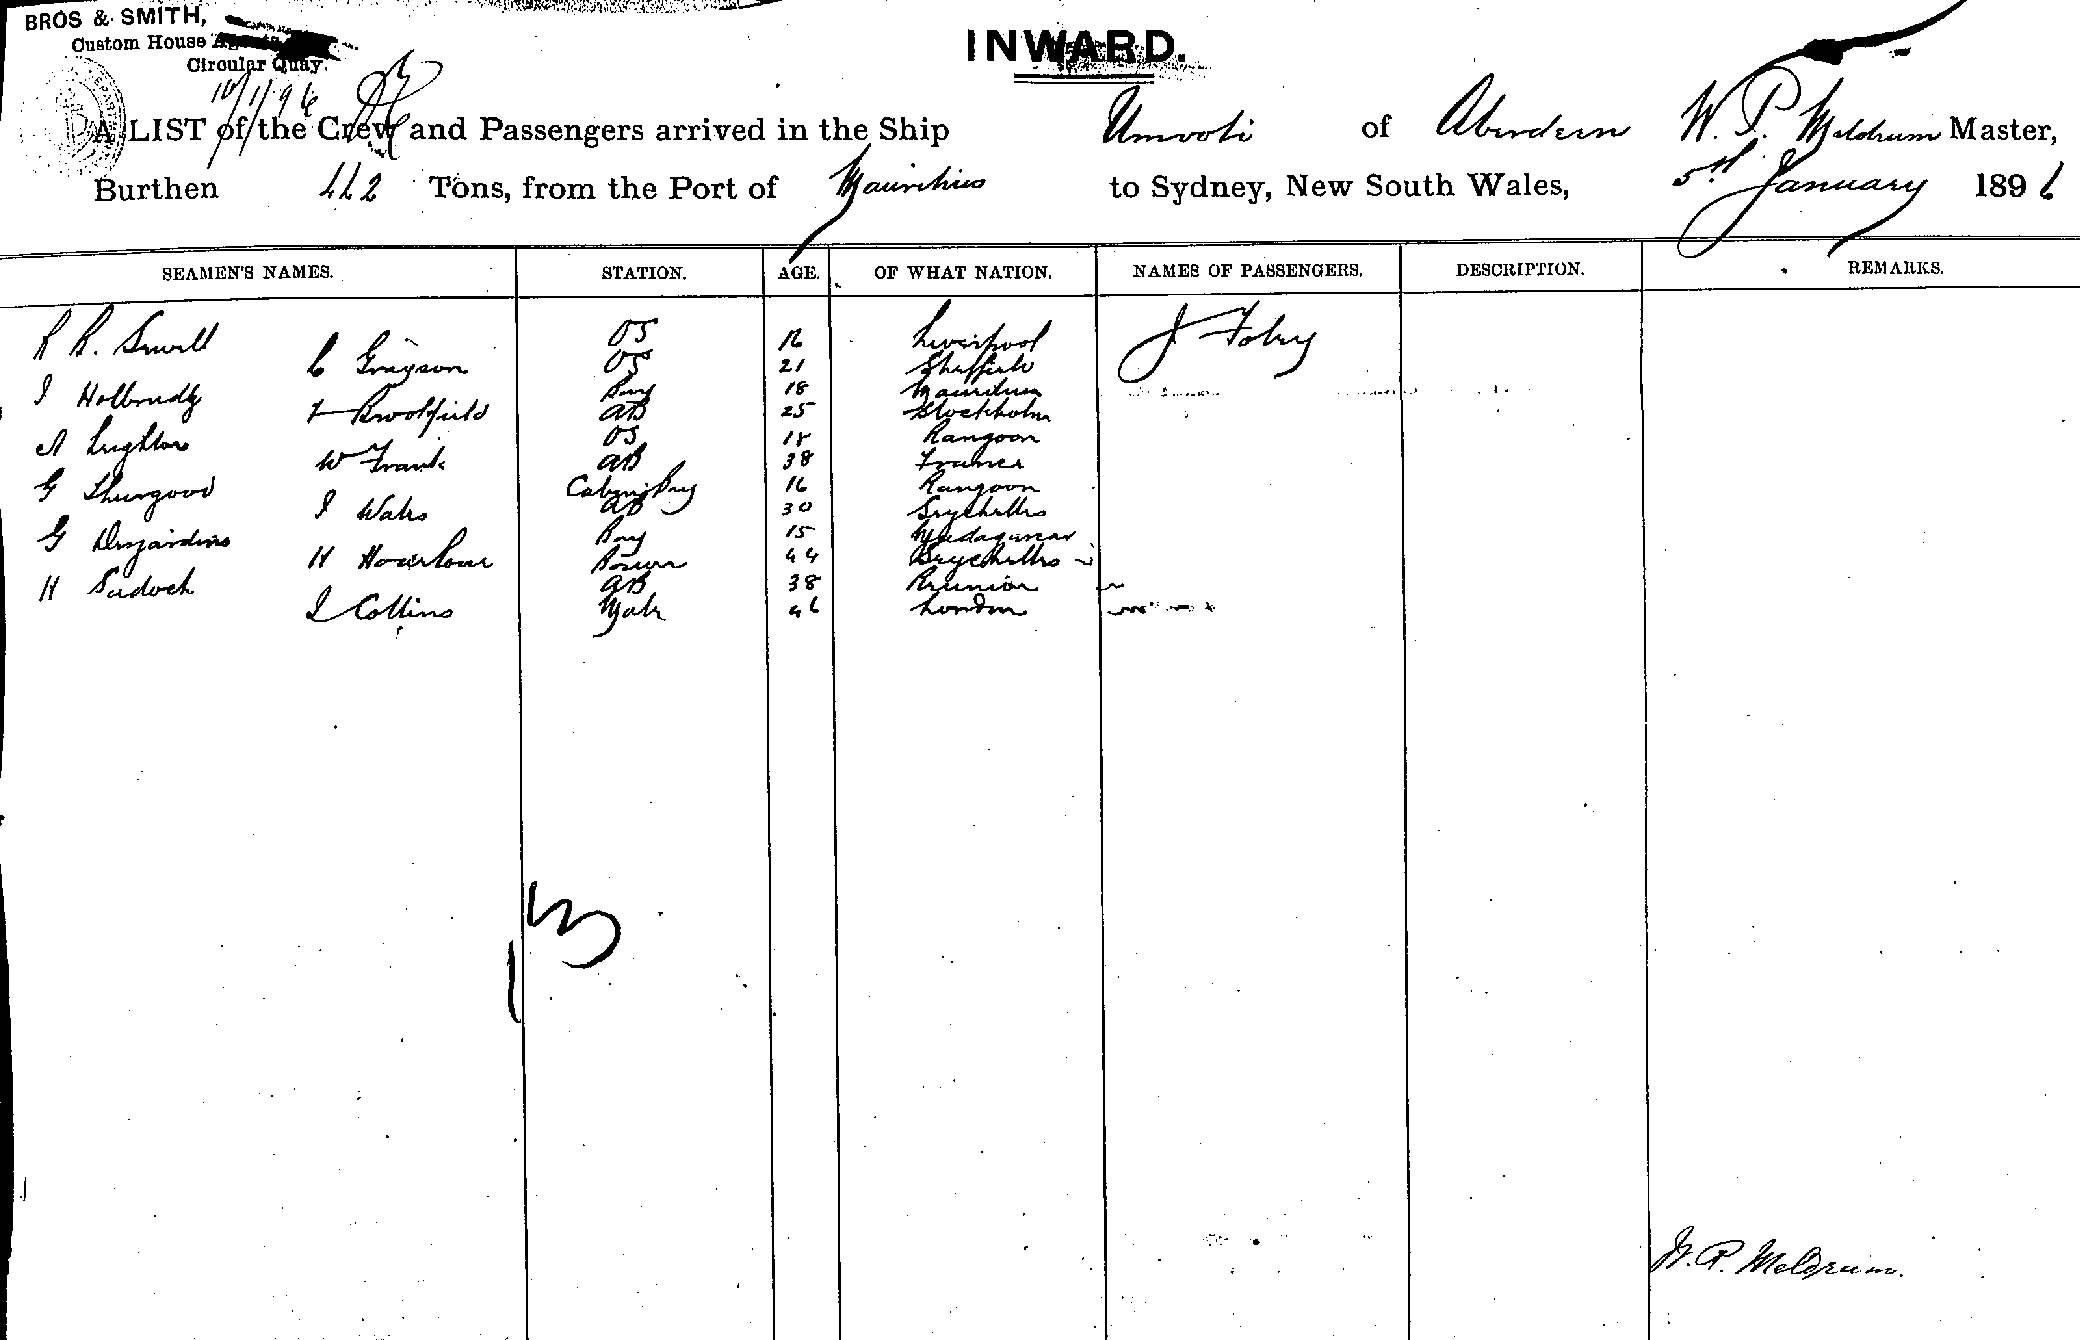 BROS & SMITH,
Custom House Agents
Circular Quay.
10/1/96
INWARD.
A LIST of the Crew and Passengers arrived in the Ship Umvoti of Aberdeen W. P. Meldrum Master,
Burthen 442 Tons, from the Port of Mauritius to Sydney, New South Wales, 5th January 1896
SEAMEN'S NAMES. STATION. AGE. OF WHAT NATION. NAMES OF PASSENGERS. DESCRIPTION. REMARKS.
R. Sewell OS Liverpool J Tobry
C Grayson OS 21 Sheffield
Boy 18 Mauritius
F Brookfield AB 25 Stockholm
A Leighton OS 18 Rangoon
W Frank AB 38 France
G Thurgood Cabin Boy 16 Rangoon
J Wales AB 30 Seychelles
G Desjardins Boy 15 Madagascar
H Bosun 44 Seychelles
H Sadock AB 38 Reunion
J Collins Mate 46 London
13
W. P. Meldrum.